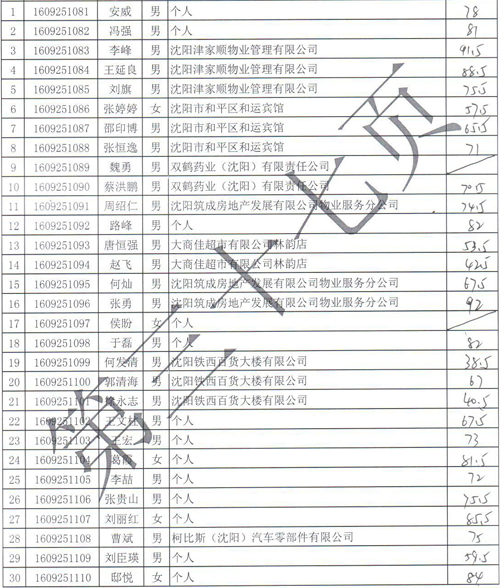 1 1609251081 安威 男 个人 78
2 1609251082 冯强 男 个人 81
3 1609251083 李峰 男 沈阳津家顺物业管理有限公司 91.5
4 1609251084 王延良 男 沈阳津家顺物业管理有限公司 88.5
5 1609251085 刘旗 男 沈阳津家顺物业管理有限公司 75.5
6 1609251086 张婷婷 女 沈阳市和平区和运宾馆 57.5
7 1609251087 邵印博 男 沈阳市和平区和运宾馆 65.5
8 1609251088 张恒逸 男 沈阳市和平区和运宾馆 71
9 1609251089 魏勇 男 双鹤药业（沈阳）有限责任公司
10 1609251090 蔡洪鹏 男 双鹤药业（沈阳）有限责任公司 70.5
11 1609251091 周绍仁 男 沈阳筑成房地产发展有限公司物业服务分公司 74.5
12 1609251092 路峰 男 个人 82
13 1609251093 唐恒强 男 大商佳超市有限公司林韵店 53.5
14 1609251094 赵飞 男 大商佳超市有限公司林韵店 42.5
15 1609251095 何灿 男 沈阳筑成房地产发展有限公司物业服务分公司 67.5
16 1609251096 张勇 男 沈阳筑成房地产发展有限公司物业服务分公司 92
17 1609251097 侯盼 女 个人
18 1609251098 于磊 男 个人 82
19 1609251099 何发清 男 沈阳铁西百货大楼有限公司 38.5
20 1609251100 郭清海 男 沈阳铁西百货大楼有限公司 67
21 1609251101 永志 男 沈阳铁西百货大楼有限公司 40.5
22 1609251102 王文 男 个人 67.5
23 1609251103 王宏 男 个人 73
24 1609251104 葛霞 女 个人 81.5
25 1609251105 李喆 男 个人 72
26 1609251106 张贵山 男 个人 75.5
27 1609251107 刘丽红 女 个人 85.5
28 1609251108 曹斌 男 柯比斯（沈阳）汽车零部件有限公司 75
29 1609251109 刘臣瑛 男 个人 59.5
30 1609251110 邸悦 女 个人 84
第三十七页